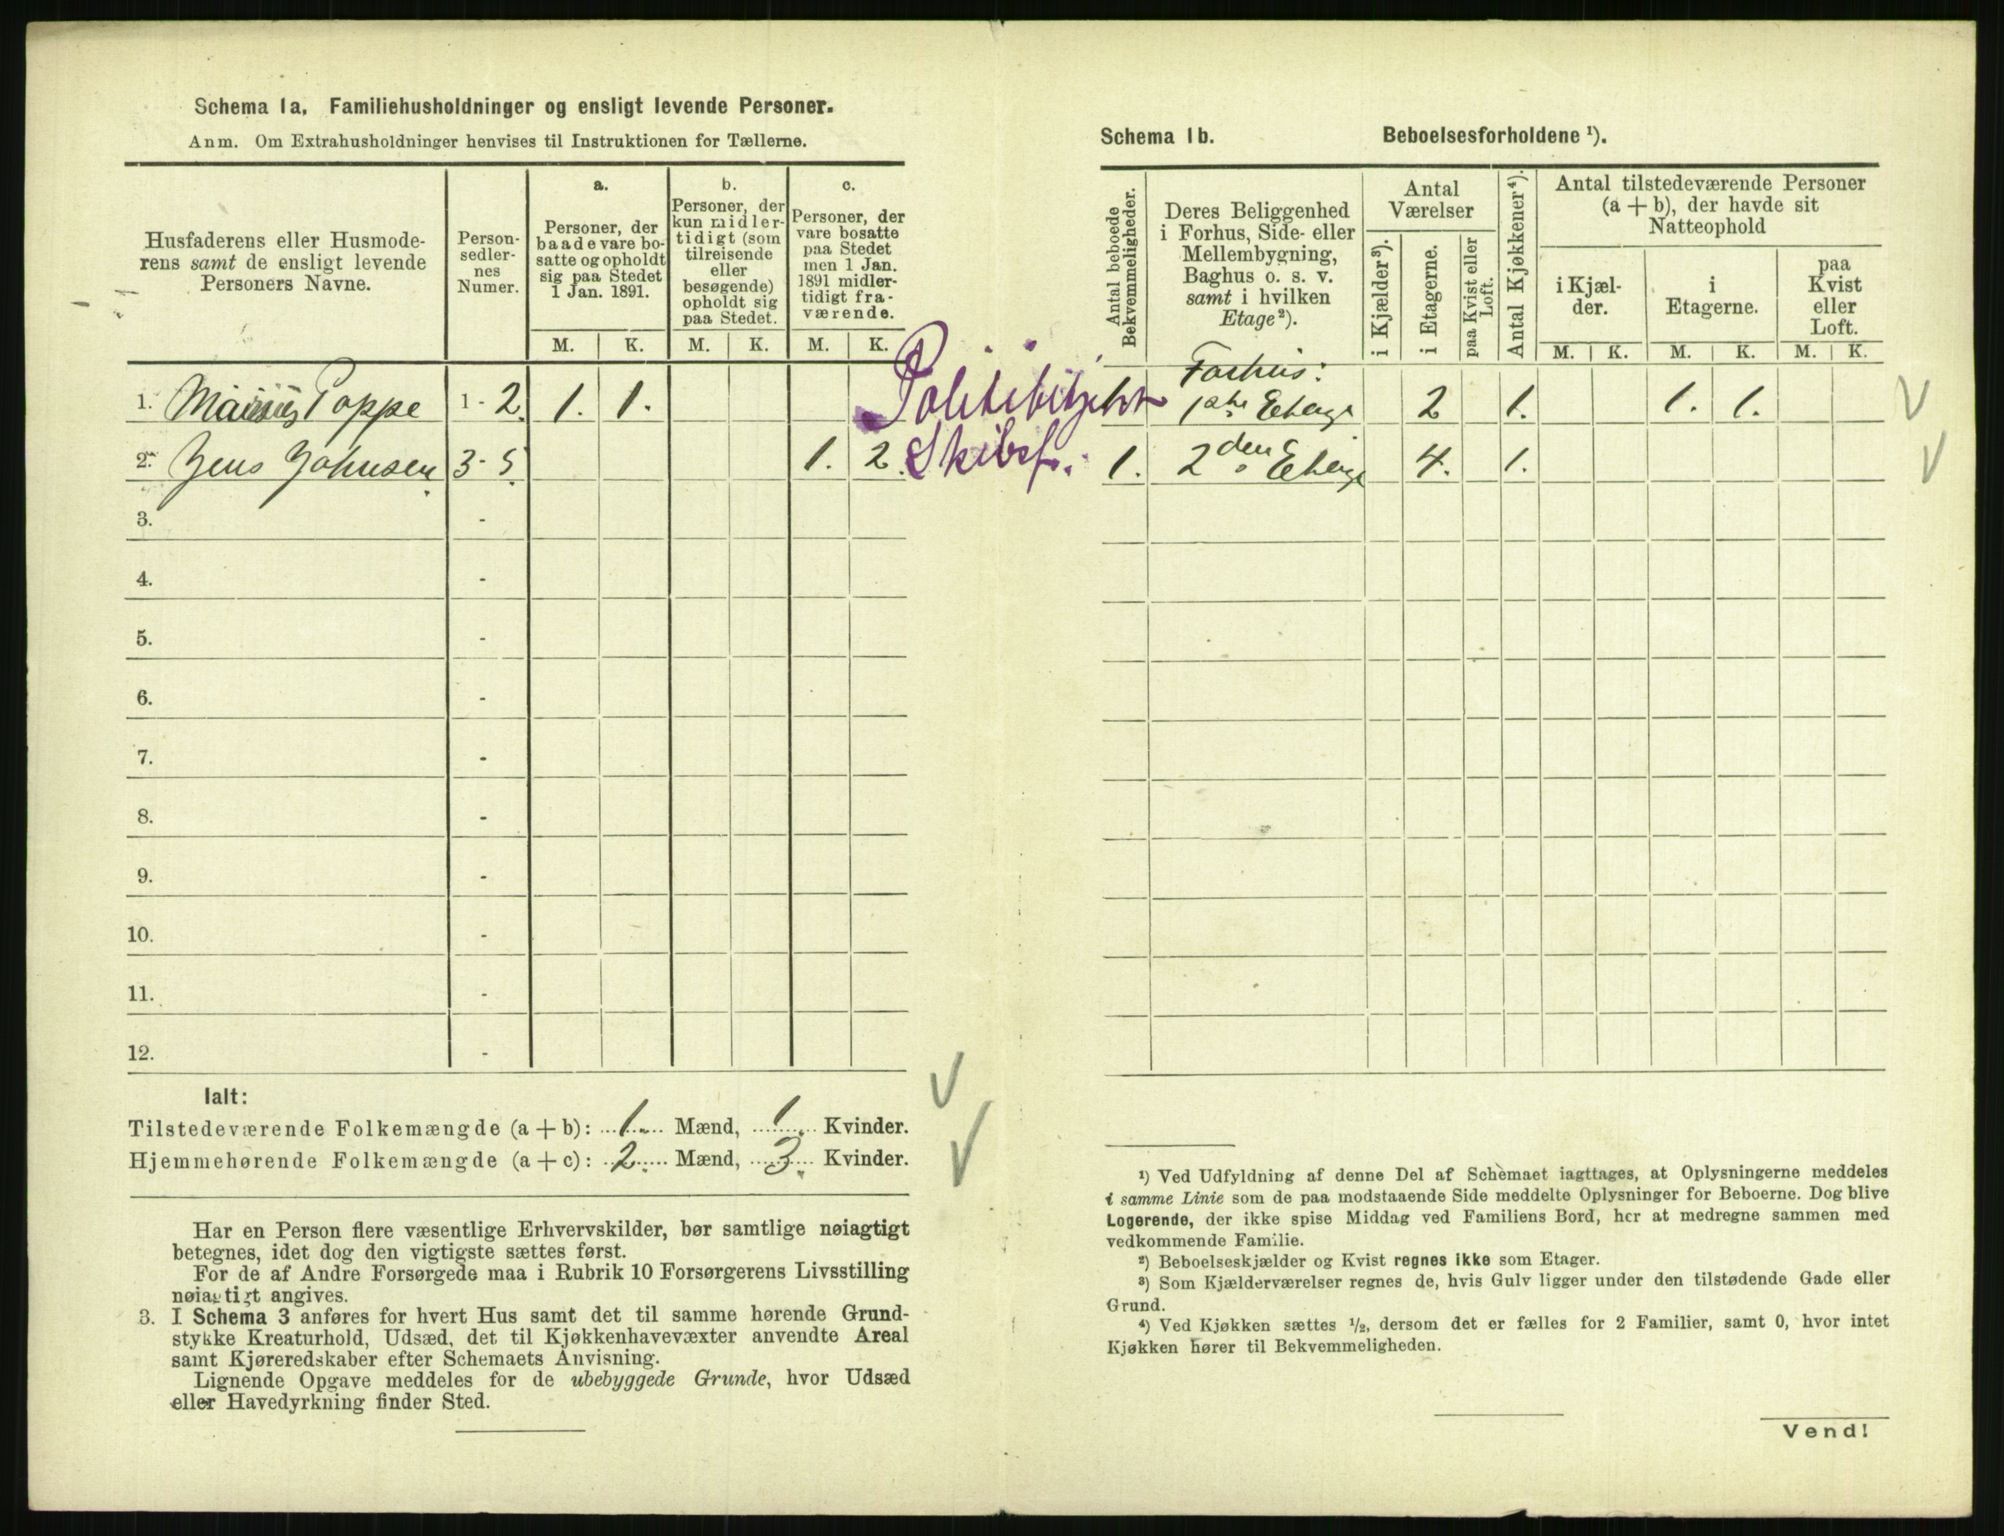 Schema 1a. Familiehusholdninger og ensligt levende Personer.
Anm. Om Extrahusholdninger henvises til Instruktionen for Tællerne.
Husfaderens eller Husmode-
rens samt de ensligt levende
Personers Navne.
Person-
sedler-
nes
Numer.
a.
Personer, der
baade vare bo-
satte og opholdt
sig paa Stedet
1 Jan. 1891.
b.
Personer, der
kun midler-
tidigt (som
tilreisende
eller
besøgende)
opholdt sig
paa Stedet.
c.
Personer, der
vare bosatte
paa Stedet
men 1 Jan.
1891 midler-
tidigt fra-
værende.
M. K. M. K. M. K.
1. Marius Poppe 1 - 2 1. 1.
2. Jens Johnsen 3 - 5 1. 2. Skibsf.
3. -
4. -
5. -
6. -
7. -
8. -
9. -
10. -
11. -
12. -
Ialt:
Tilstedeværende Folkemængde (a + b): 1. Mænd, 1. Kvinder.
Hjemmehørende Folkemængde (a + c): 2. Mænd, 3. Kvinder.
Har en Person flere væsentlige Erhvervskilder, bør samtlige nøiagtigt
betegnes, idet dog den vigtigste sættes først.
For de af Andre Forsørgede maa i Rubrik 10 Forsørgerens Livsstilling
nøiagtigt angives.
3. I Schema 3 anføres for hvert Hus samt det til samme hørende Grund-
stykke Kreaturhold, Udsæd, det til Kjøkkenhavevæxter anvendte Areal
samt Kjøreredskaber efter Schemaets Anvisning.
Lignende Opgave meddeles for de ubebyggede Grunde, hvor Udsæd
eller Havedyrkning finder Sted.
Schema 1b. Beboelsesforholdene ¹).
Antal beboede
Bekvemmeligheder.
Deres Beliggenhed
i Forhus, Side- eller
Mellembygning,
Baghus o. s. v.
samt i hvilken
Etage²).
Antal
Værelser
i Kjælder³).
i Etagerne.
paa Kvist eller
Loft.
Antal Kjøkkener⁴).
Antal tilstedeværende Personer
(a + b), der havde sit
Natteophold
i Kjæl-
der.
i
Etagerne.
paa
Kvist
eller
Loft.
M. K. M. K. M. K.
Forhus:
1ste Etage 2 1. 1. 1.
1. 2den Etage 4. 1.
¹) Ved Udfyldning af denne Del af Schemaet iagttages, at Oplysningerne meddeles
i samme Linie som de paa modstaaende Side meddelte Oplysninger for Beboerne. Dog blive
Logerende, der ikke spise Middag ved Familiens Bord, her at medregne sammen med
vedkommende Familie.
²) Beboelseskjælder og Kvist regnes ikke som Etager.
³) Som Kjælderværelser regnes de, hvis Gulv ligger under den tilstødende Gade eller
Grund.
⁴) Ved Kjøkken sættes ½, dersom det er fælles for 2 Familier, samt 0, hvor intet
Kjøkken hører til Bekvemmeligheden.
Vend!